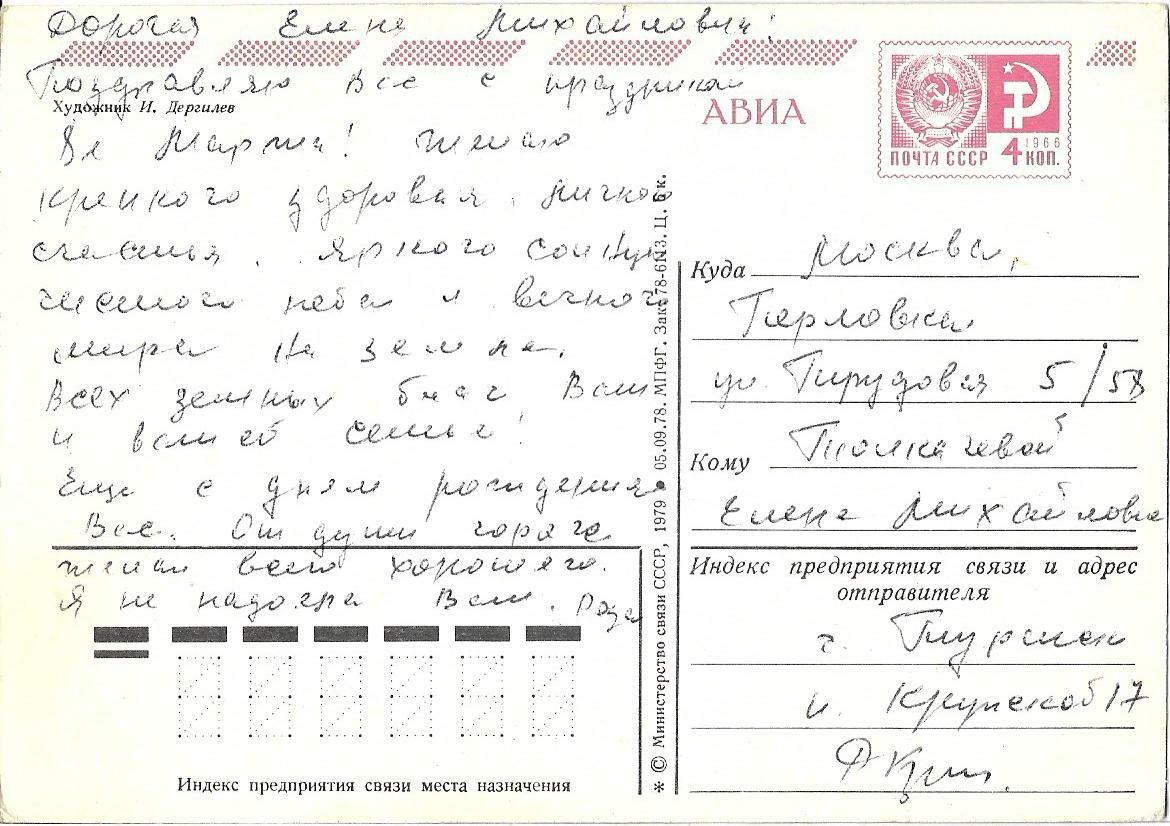 Дорогая Елена Михайловна!
Поздравляю Вас с праздником
Художник И. Дергилев
8е Марта! Желаю
крепкого здоровья, личного
счастья, яркого солнца
чистого неба и вечного
мира на земле.
Всех земных благ Вам
и вашей семье!
Еще с днем рождения
Вас. От души горячо
желаю всего хорошего.
Я не надоела Вам. Роза
Индекс предприятия связи места назначения
* © Министерство связи СССР, 1979 • 05.09.78. МПФГ. Зак. 78-6113. Ц. 6 к.
АВИА
ПОЧТА СССР 4 1966 КОП.
Куда Москва,
Перловка
ул. Прудовая 5/58
Кому Толкачевой
Елене Михайловне
Индекс предприятия связи и адрес
отправителя
г.
Крупской 17